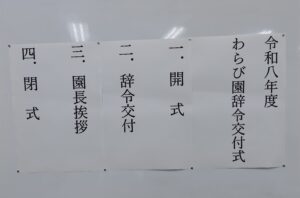 令和八年度
わらび園辞令交付式
一．開式
二．辞令交付
三．園長挨拶
四．閉式